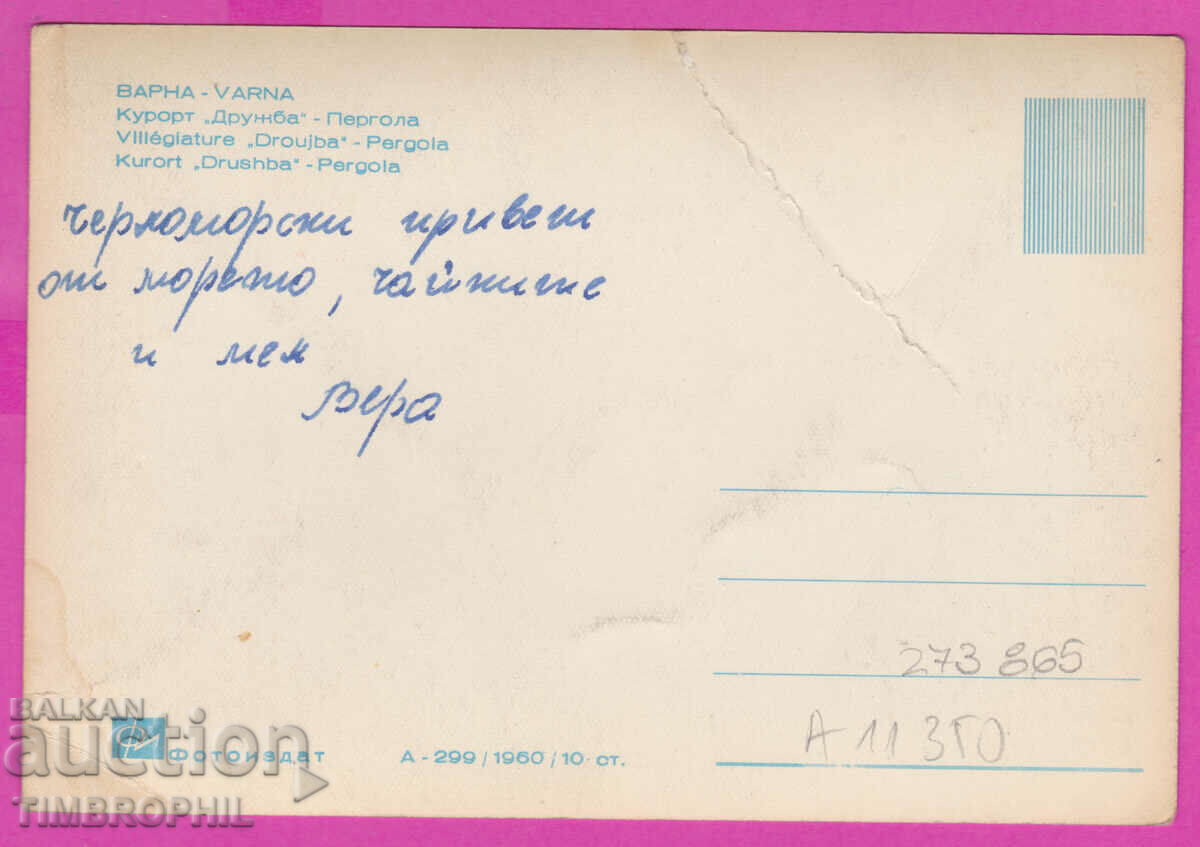 ВАРНА - VARNA
Курорт „Дружба" - Пергола
Villégiature „Droujba" - Pergola
Kurort „Drushba" - Pergola
Черноморски привет
от морето, чайките
и мен
Вера
273 865
A 11 350
Фотоиздат
А - 299 / 1960 / 10 ст.
BALKAN
auction
TIMBROPHIL